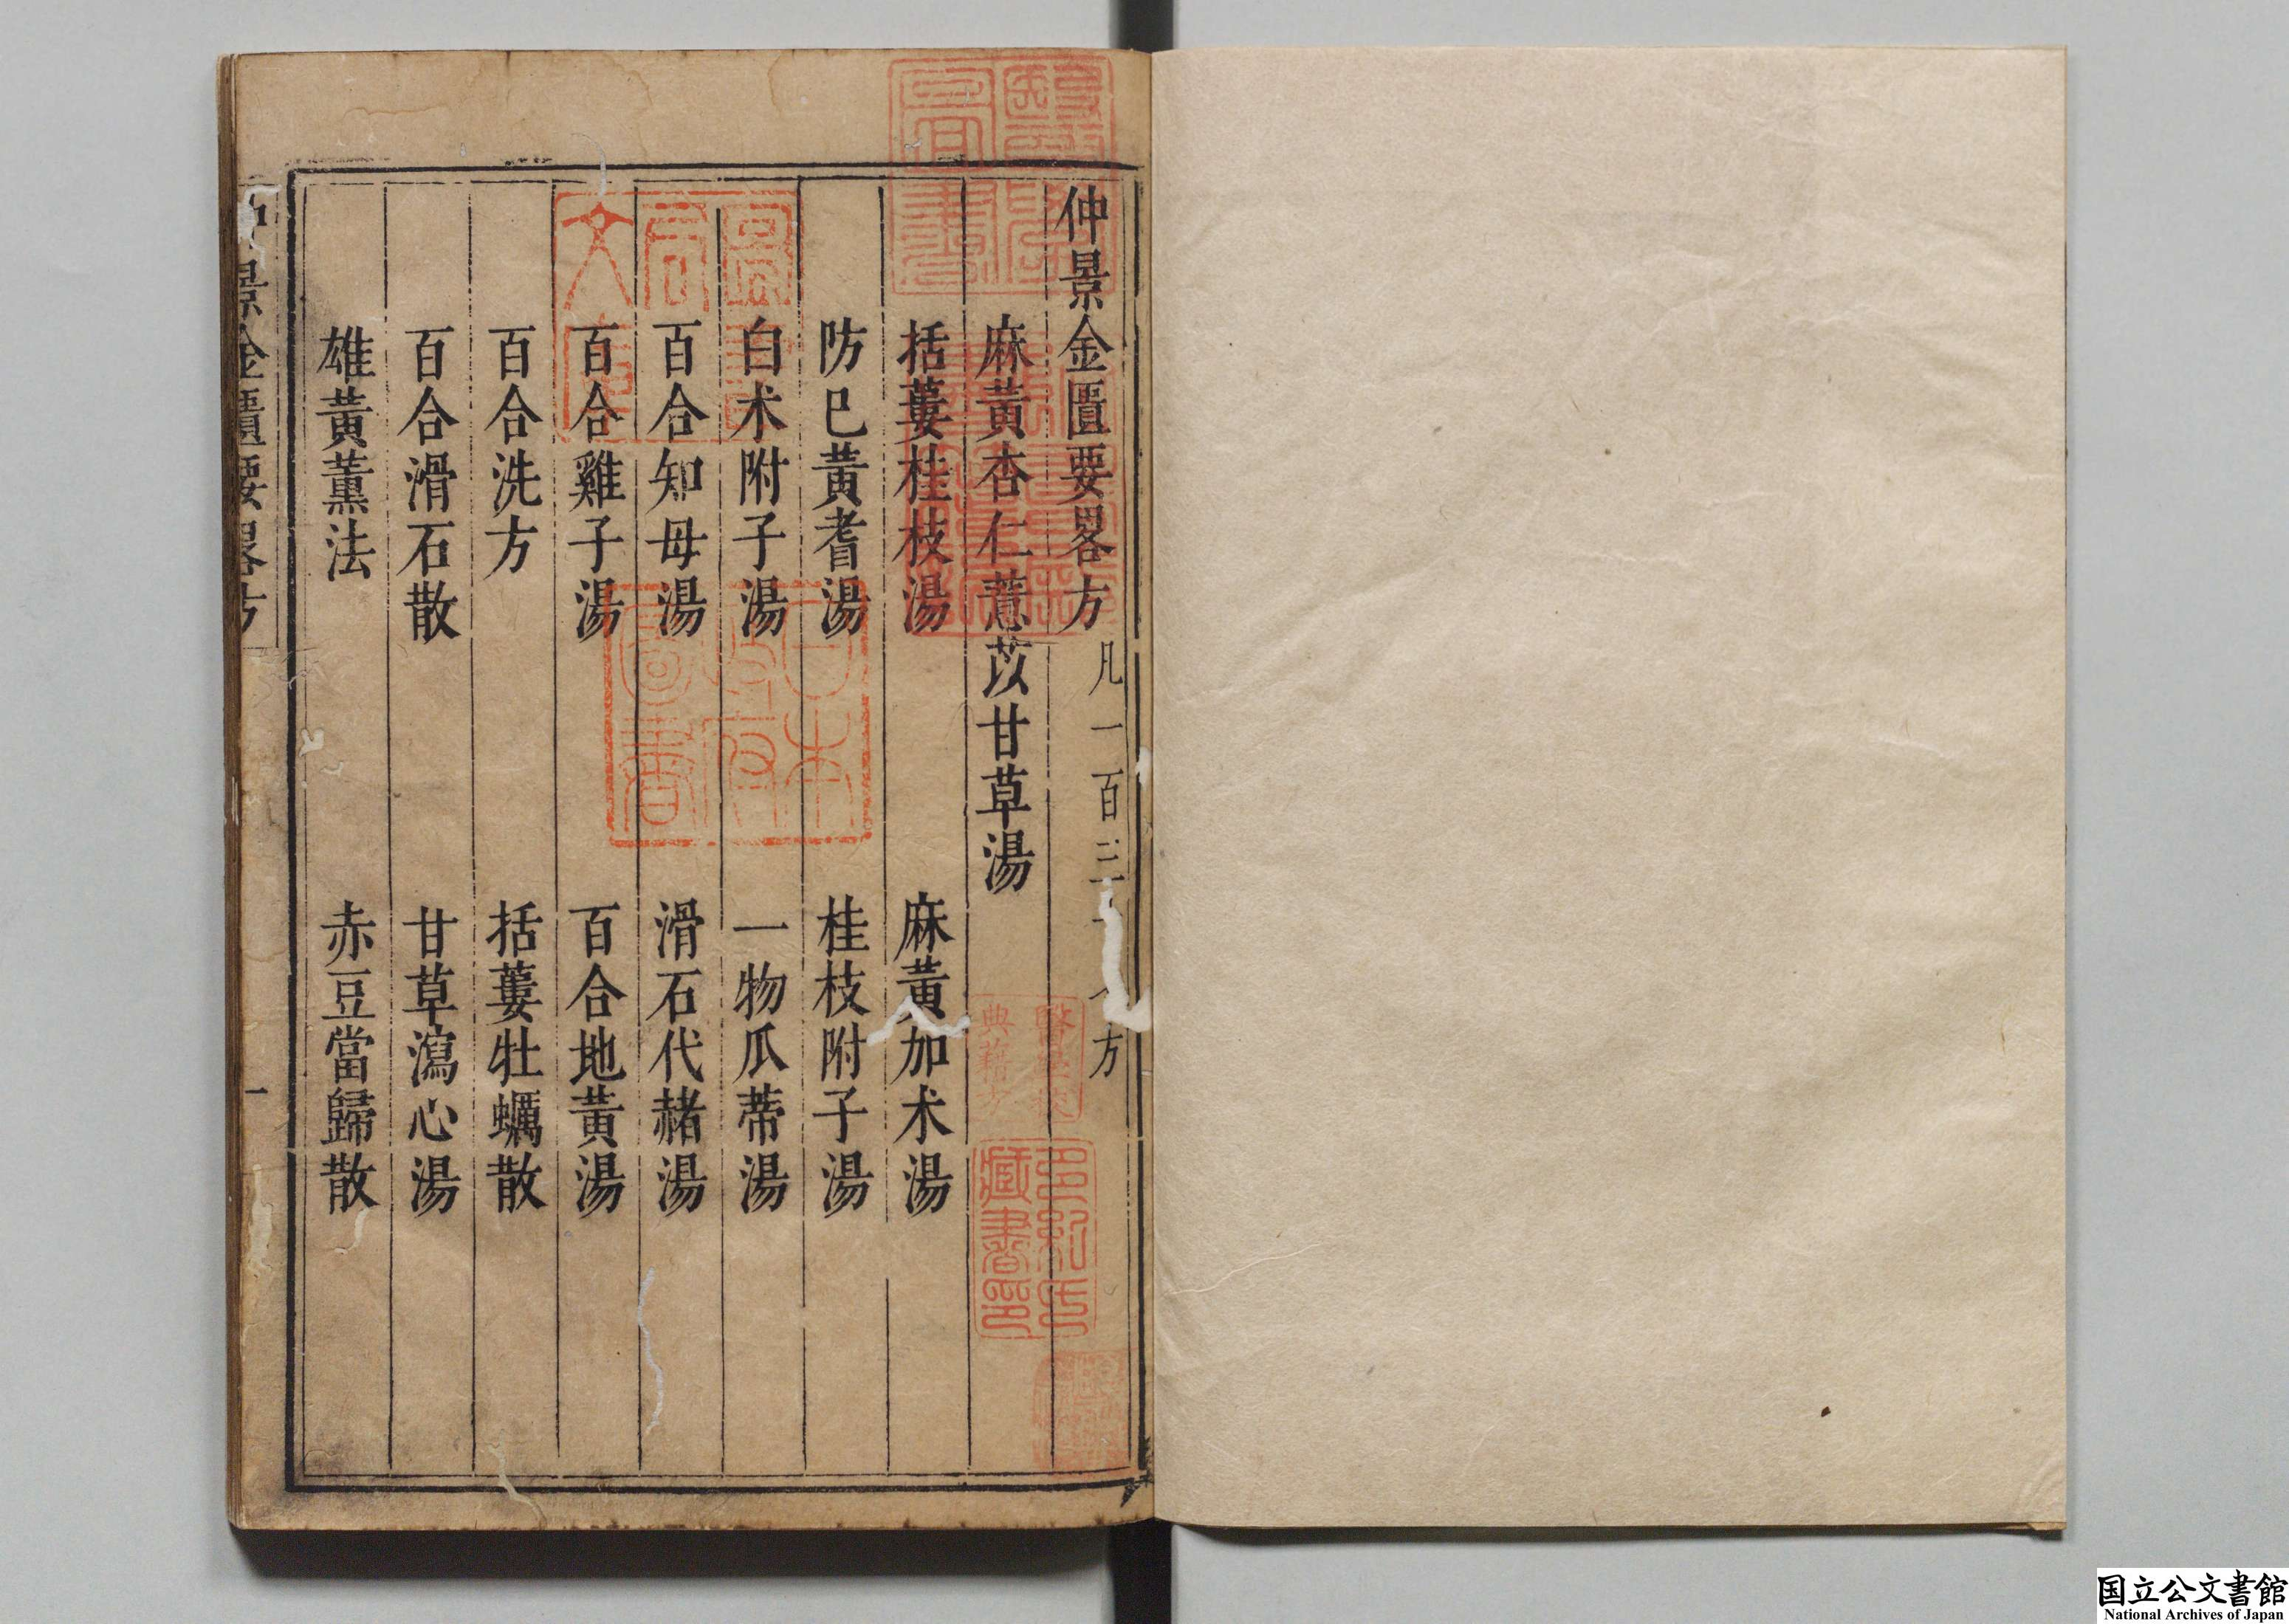 仲景金匱要畧方 凡一百三 方
麻黃杏仁薏苡甘草湯
括蔞桂枝湯 麻黃加术湯
防已黃耆湯 桂枝附子湯
白术附子湯 一物瓜蒂湯
百合知母湯 滑石代赭湯
百合雞子湯 百合地黃湯
百合洗方 括蔞牡蠣散
百合滑石散 甘草瀉心湯
雄黃薰法 赤豆當歸散
景金匱要畧方
一
日本政府圖書
多紀氏藏書印
国立公文書館
National Archives of Japan